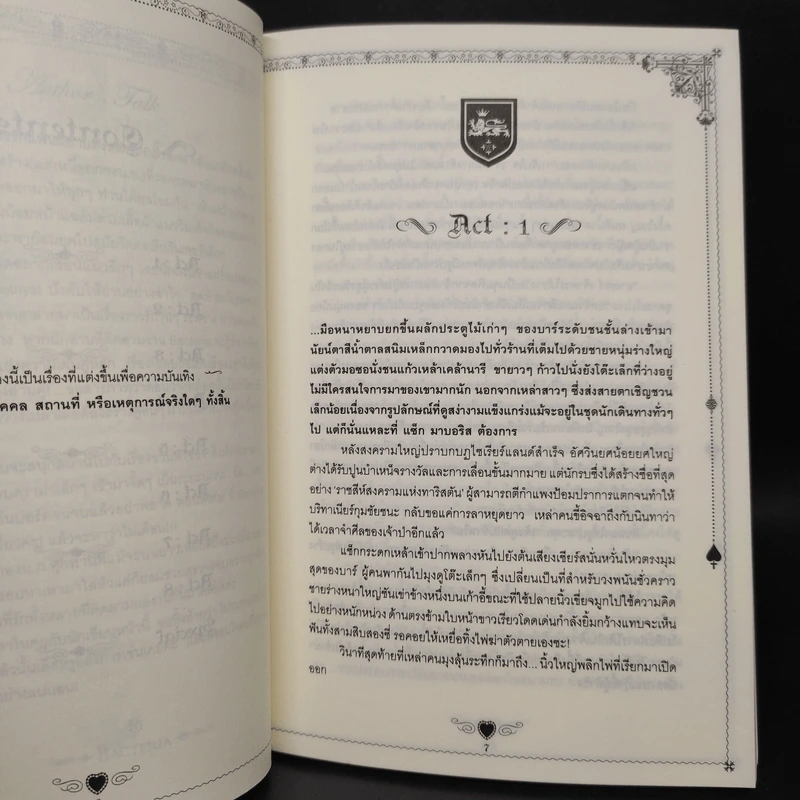 องนี้เป็นเรื่องที่แต่งขึ้นเพื่อความบันเทิง
คคล สถานที่ หรือเหตุการณ์จริงใดๆ ทั้งสิ้น
Act : 1
...มือหนาหยาบยกขึ้นผลักประตูไม้เก่าๆ ของบาร์ระดับชนชั้นล่างเข้ามา
นัยน์ตาสีน้ำตาลสนิมเหล็กกวาดมองไปทั่วร้านที่เต็มไปด้วยชายหนุ่มร่างใหญ่
แต่งตัวมอซอนั่งชนแก้วเหล้าเคล้านารี ขายาวๆ ก้าวไปนั่งยังโต๊ะเล็กที่ว่างอยู่
ไม่มีใครสนใจการมาของเขามากนัก นอกจากเหล่าสาวๆ ซึ่งส่งสายตาเชิญชวน
เล็กน้อยเนื่องจากรูปลักษณ์ที่ดูสง่างามแข็งแกร่งแม้จะอยู่ในชุดนักเดินทางทั่วๆ
ไป แต่ก็นั่นแหละที่ แซ็ก มาบอริส ต้องการ
หลังสงครามใหญ่ปราบกบฏไซเรียร์แลนด์สำเร็จ อัศวินยศน้อยยศใหญ่
ต่างได้รับปูนบำเหน็จรางวัลและการเลื่อนขั้นมากมาย แต่นักรบซึ่งได้สร้างชื่อที่สุด
อย่าง ‘ราชสีห์สงครามแห่งทาริสตัน’ ผู้สามารถตีกำแพงป้อมปราการแตกจนทำให้
บริทาเนียร์กุมชัยชนะ กลับขอแค่การลาหยุดยาว เหล่าคนขี้อิจฉาถึงกับนินทาว่า
ได้เวลาจำศีลของเจ้าป่าอีกแล้ว
แซ็กกระดกเหล้าเข้าปากพลางหันไปยังต้นเสียงเชียร์สนั่นหวั่นไหวตรงมุม
สุดของบาร์ ผู้คนพากันไปมุงดูโต๊ะเล็กๆ ซึ่งเปลี่ยนเป็นที่สำหรับวงพนันชั่วคราว
ชายร่างหนาใหญ่ชันเข่าข้างหนึ่งบนเก้าอี้ขณะที่ใช้ปลายนิ้วเขี่ยจมูกไปใช้ความคิด
ไปอย่างหนักหน่วง ด้านตรงข้ามใบหน้าขาวเรียวโดดเด่นกำลังยิ้มกว้างแทบจะเห็น
ฟันทั้งสามสิบสองซี่ รอคอยให้เหยื่อทิ้งไพ่ฆ่าตัวตายเองซะ!
วินาทีสุดท้ายที่เหล่าคนมุงลุ้นระทึกก็มาถึง... นิ้วใหญ่พลิกไพ่ที่เรียกมาเปิด
ออก
7